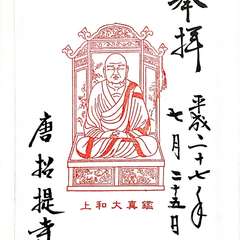 奉拝
平成二十七年
七月二十五日
上和大真鑑
唐招提寺